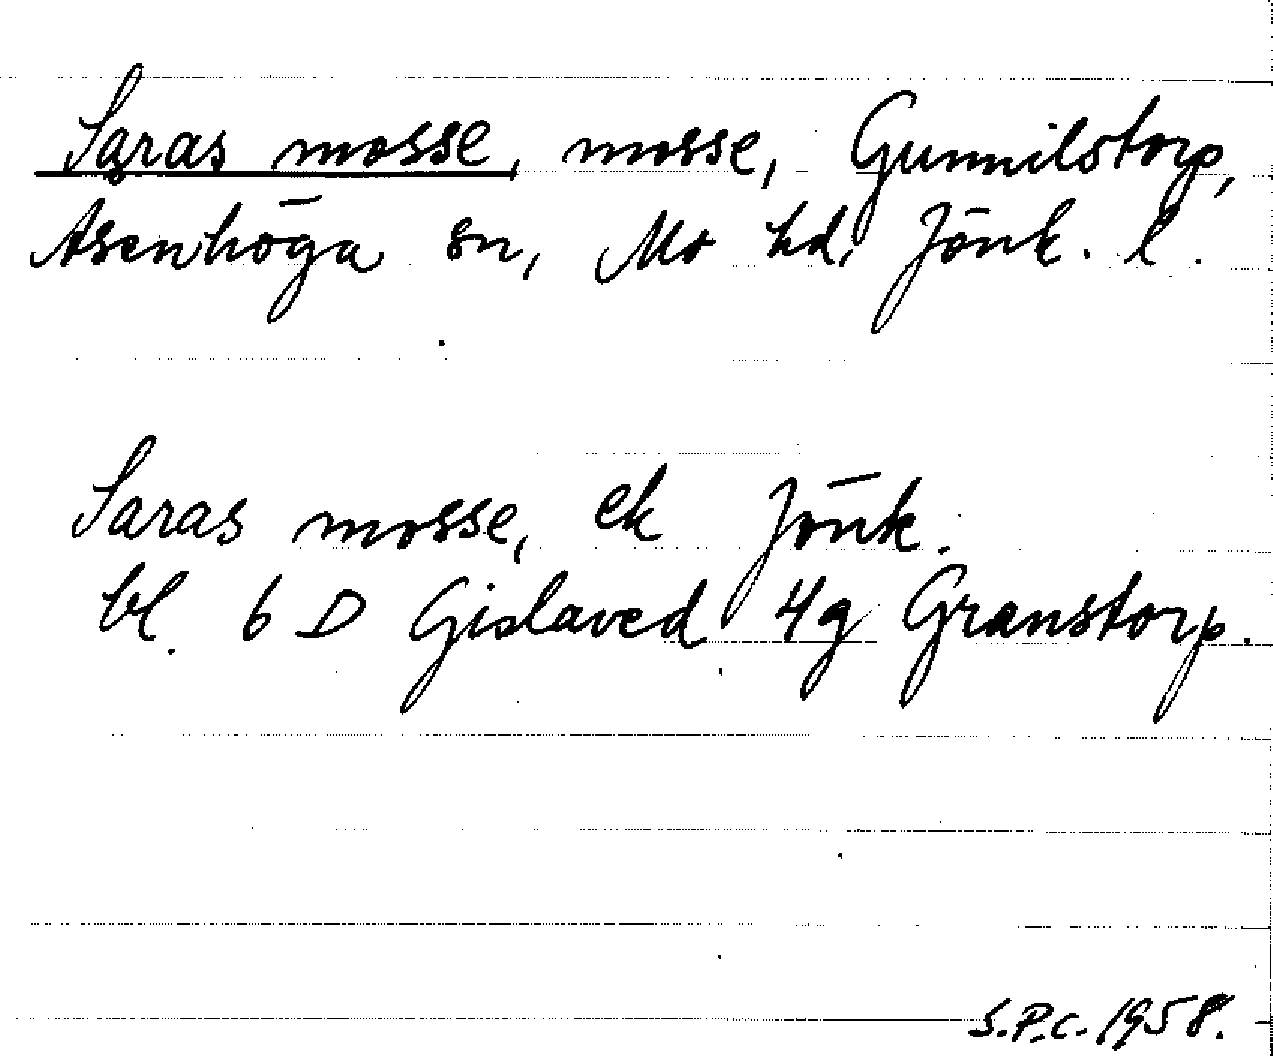 Saras mosse, mosse, Gunnilstorp,
Åsenhöga sn, Mo hd, Jönk. l.
Saras mosse, ek Jönk.
bl. 6 D Gislaved 4g Granstorp.
S.P.C. 1958.